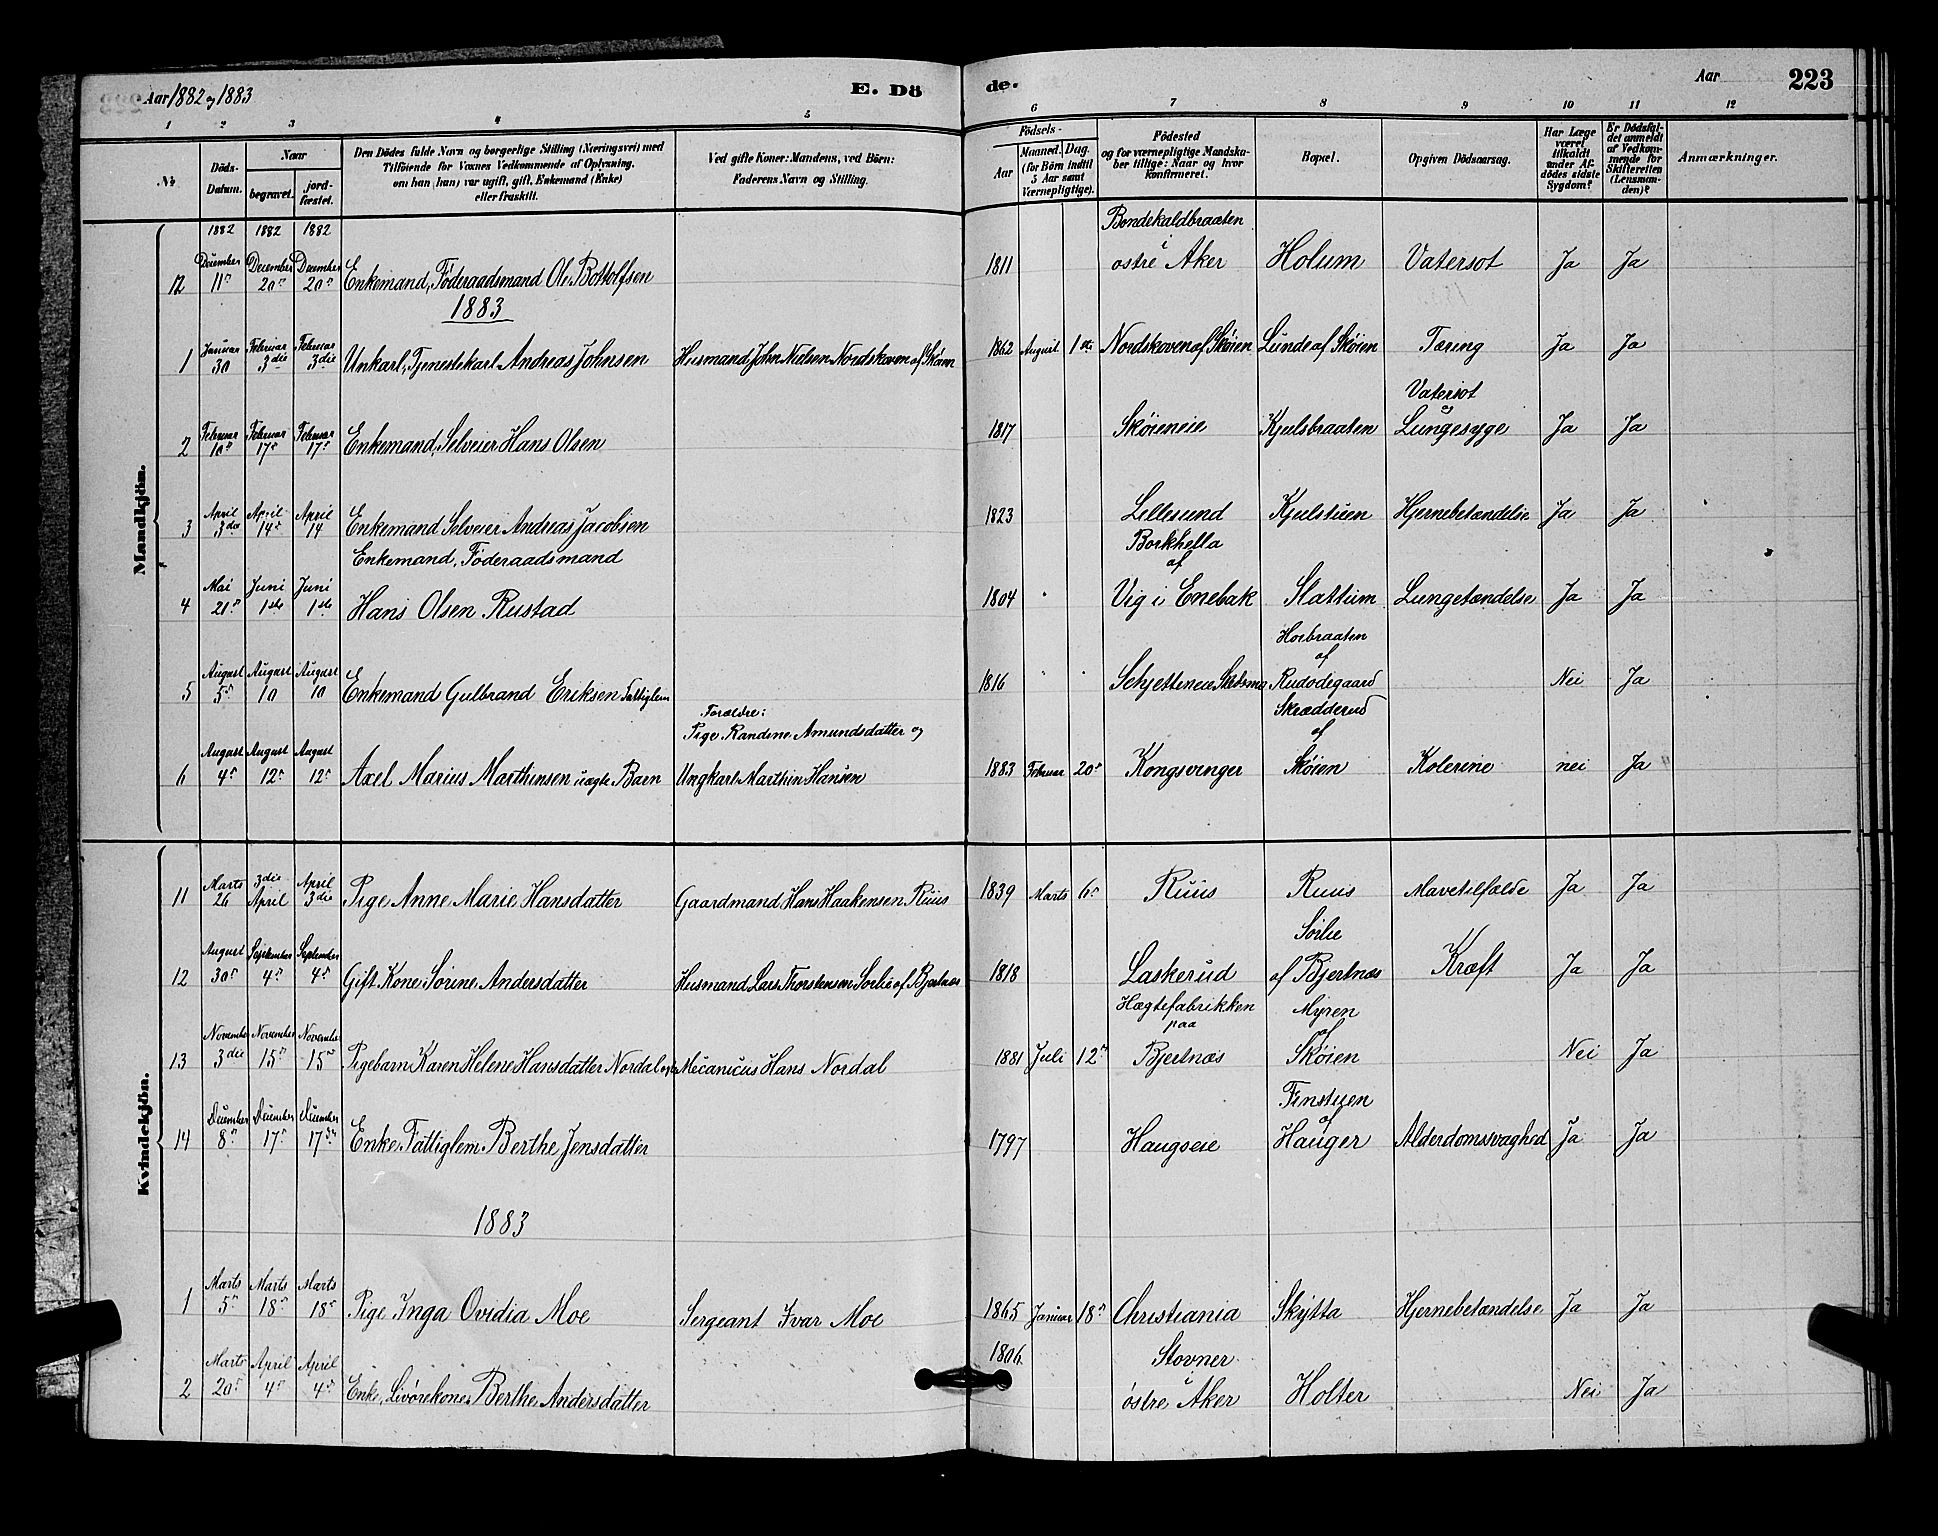 Aar 1882 og 1883
E. Dö
de.
Aar
223
1 2 3 4 5 6 7 8 9 10 11 12
No
Döds-Datum.
Naar
begravet.
jord-fæstet.
Den Dödes fulde Navn og borgerlige Stilling (Næringsvei) med
Tilföiende for Voxnes Vedkommende af Oplysning,
om han (hun) var ugift, gift, Enkemand (Enke)
eller fraskilt.
Ved gifte Koner: Mandens, ved Börn:
Faderens Navn og Stilling.
Födsels-
Aar
Maaned. Dag.
(for Börn indtil
5 Aar samt
Værnepligtige).
Födested
og for værnepligtige Mandska-
ber tillige: Naar og hvor
Konfirmeret.
Bopæl.
Opgiven Dödsaarsag.
Har Læge
været
tilkaldt
under Af-
dödes sidste
Sygdom?
Er Dödsfal-
det anmeldt
af Vedkom-
mende for
Skifteretten
(Lensman-
den)?
Anmærkninger.
Mandkjön.
1882 1882 1882
12 December 11te December 20de December 20de Enkemand, Föderaadsmand Ole Bottolfsen 1811 Bondekaldbraaten i østre Aker Holum Vatersot Ja Ja
1883
1 Januar 30 Februar 3die Februar 3die Unkarl, Tjenestekarl Andreas Johnsen Husmand John Nielsen Nordskoven af Skøien 1862 August 1ste Nordskoven af Skøien Lunde af Skøien Tæring Ja Ja
2 Februar 10de Februar 17de Februar 17de Enkemand, Selveier Hans Olsen 1817 Skøieneie Kjulsbraaten Vatersot og Lungesyge Ja Ja
3 April 3die April 14de April 14 Enkemand Selveier Andreas Jacobsen 1823 Lillesund Kjulstuen Hjernebetændelse Ja Ja
4 Mai 21de Juni 1ste Juni 1ste Enkemand, Föderaadsmand
Hans Olsen Rustad 1804 Borkhella af Vig i Enebak Slattum Lungetændelse Ja Ja
5 August 5te August 10 August 10 Enkemand Gulbrand Eriksen Fattiglem 1816 Skjetteneie Skedsmo Horbraaten af Rudodegaard Nei Ja
6 August 4de August 12te August 12te Axel Marius Marthinsen uægte Barn Forældre:
Pige Randine Amundsdatter og
Ungkarl Marthin Hansen 1883 Februar 20de Kongsvinger Skrædderud af Skøien Kolerine nei Ja
Kvindekjön.
11 Marts 26 3die April April 3die Pige Anne Marie Hansdatter Gaardmand Hans Haakensen Ruus 1839 Marts 6te Ruus Ruus Mavetilfælde Ja Ja
12 August 30te September 4de September 4de Gift Kone Sörine Andersdatter Husmand Lars Thorstensen Sörlie af Bjertnæs 1818 Laskerud Sörlie af Bjertnæs Kræft Ja Ja
13 November 3die November 15de November 15de Pigebarn Karen Helene Hansdatter Nordal Mecanicus Hans Nordal 1881 Juli 12te Hægtefabrikken paa Bjertnæs Myren af Skøien Nei Ja
14 December 8de December 17de December 17de Enke, Fattiglem Berthe Jensdatter 1797 Haugseie Finstuen af Hauger Alderdomssvaghed Ja Ja
1883
1 Marts 5te Marts 18de Marts 18de Pige Inga Ovidia Moe Sergeant Ivar Moe 1865 Januar 18de Christiania Skytta Hjernebetændelse Ja Ja
2 Marts 20de April 4de April 4de Enke, Livörekone Berthe Andersdatter 1806 Stovner i østre Aker Holter Nei Ja